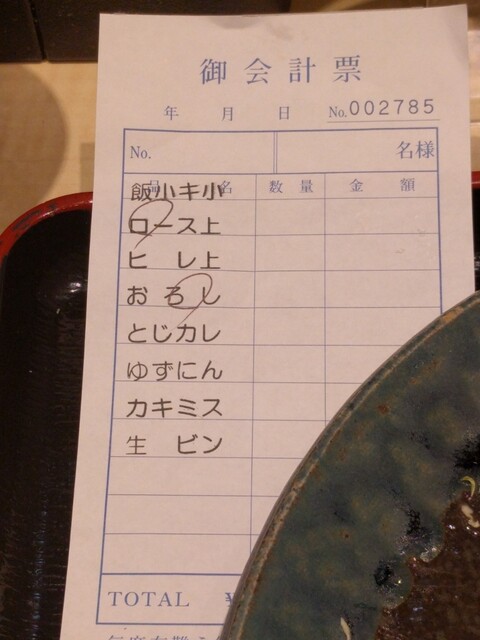 御会計票
年 月 日 No.002785
No. 名様
品名 数量 金額
飯小キ小
ロース上
ヒレ上
おろし
とじカレ
ゆずにん
カキミス
生 ビン
TOTAL ¥